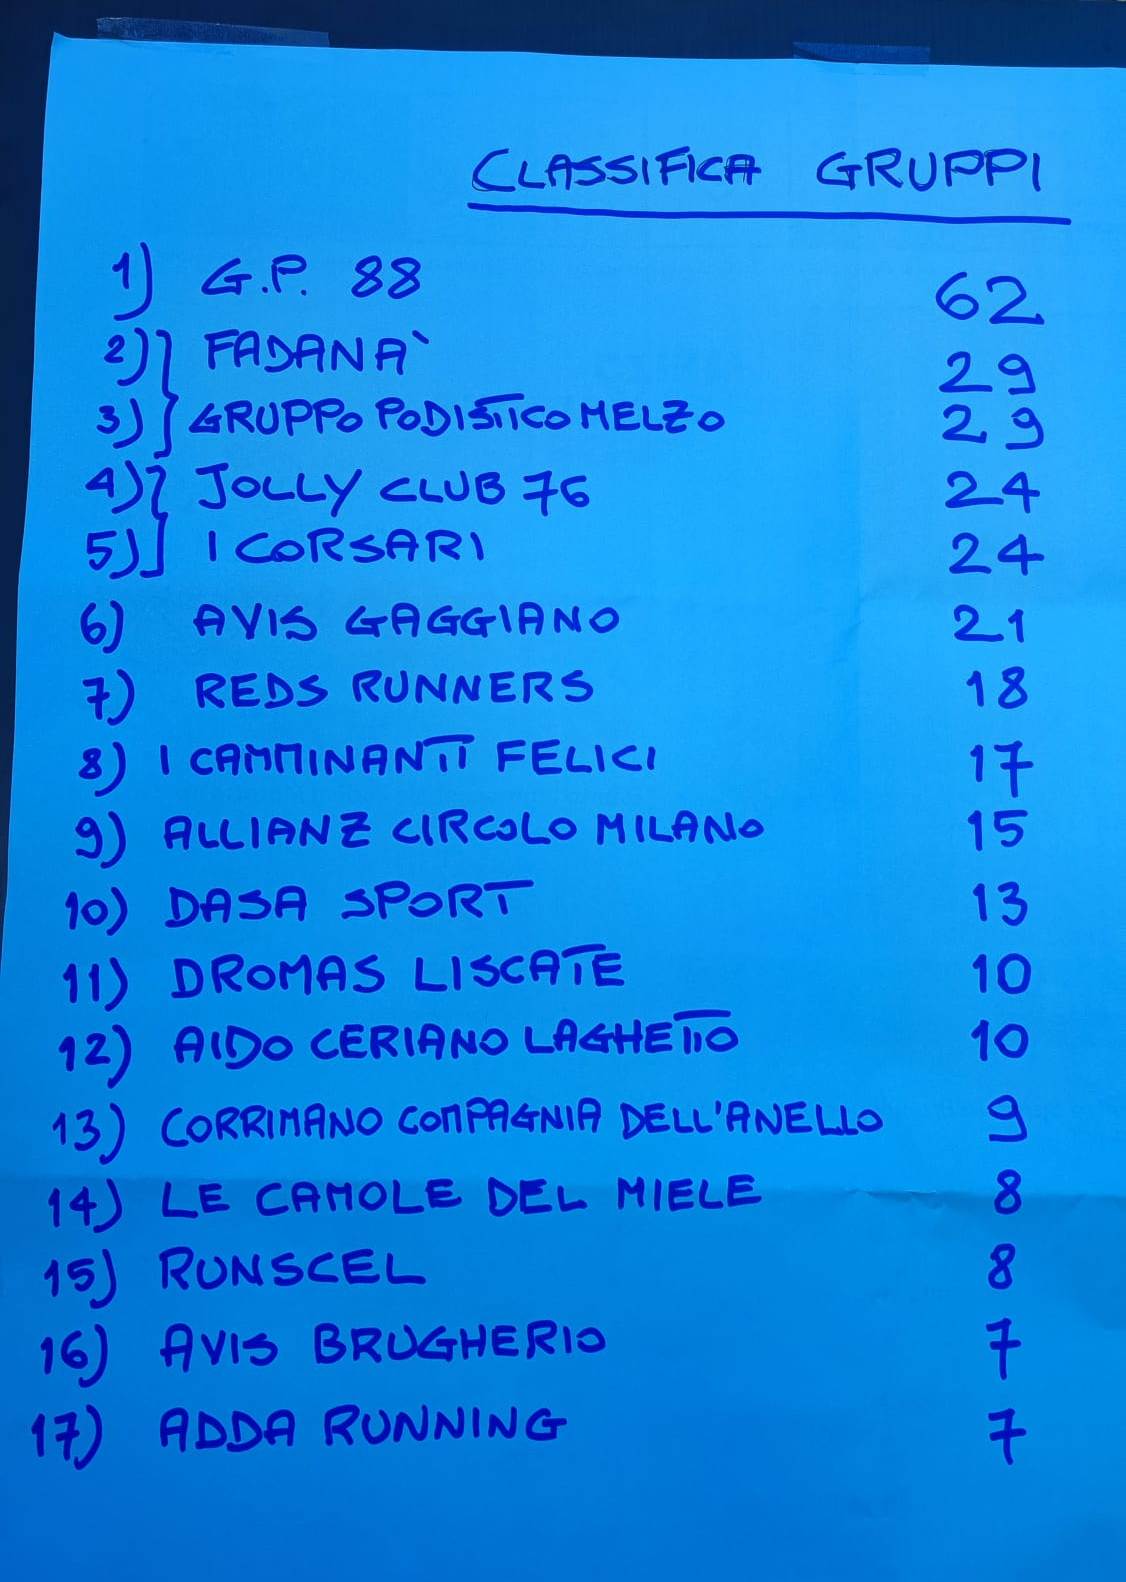 CLASSIFICA GRUPPI
1) G.P. 88 62
2) FADANA` 29
3) GRUPPO PODISTICO MELZO 29
4) JOLLY CLUB 76 24
5) I CORSARI 24
6) AVIS GAGGIANO 21
7) REDS RUNNERS 18
8) I CAMMINANTI FELICI 17
9) ALLIANZ CIRCOLO MILANO 15
10) DASA SPORT 13
11) DROMAS LISCATE 10
12) AIDO CERIANO LAGHETTO 10
13) CORRIMANO COMPAGNIA DELL'ANELLO 9
14) LE CAMOLE DEL MIELE 8
15) RUNSCEL 8
16) AVIS BRUGHERIO 7
17) ADDA RUNNING 7